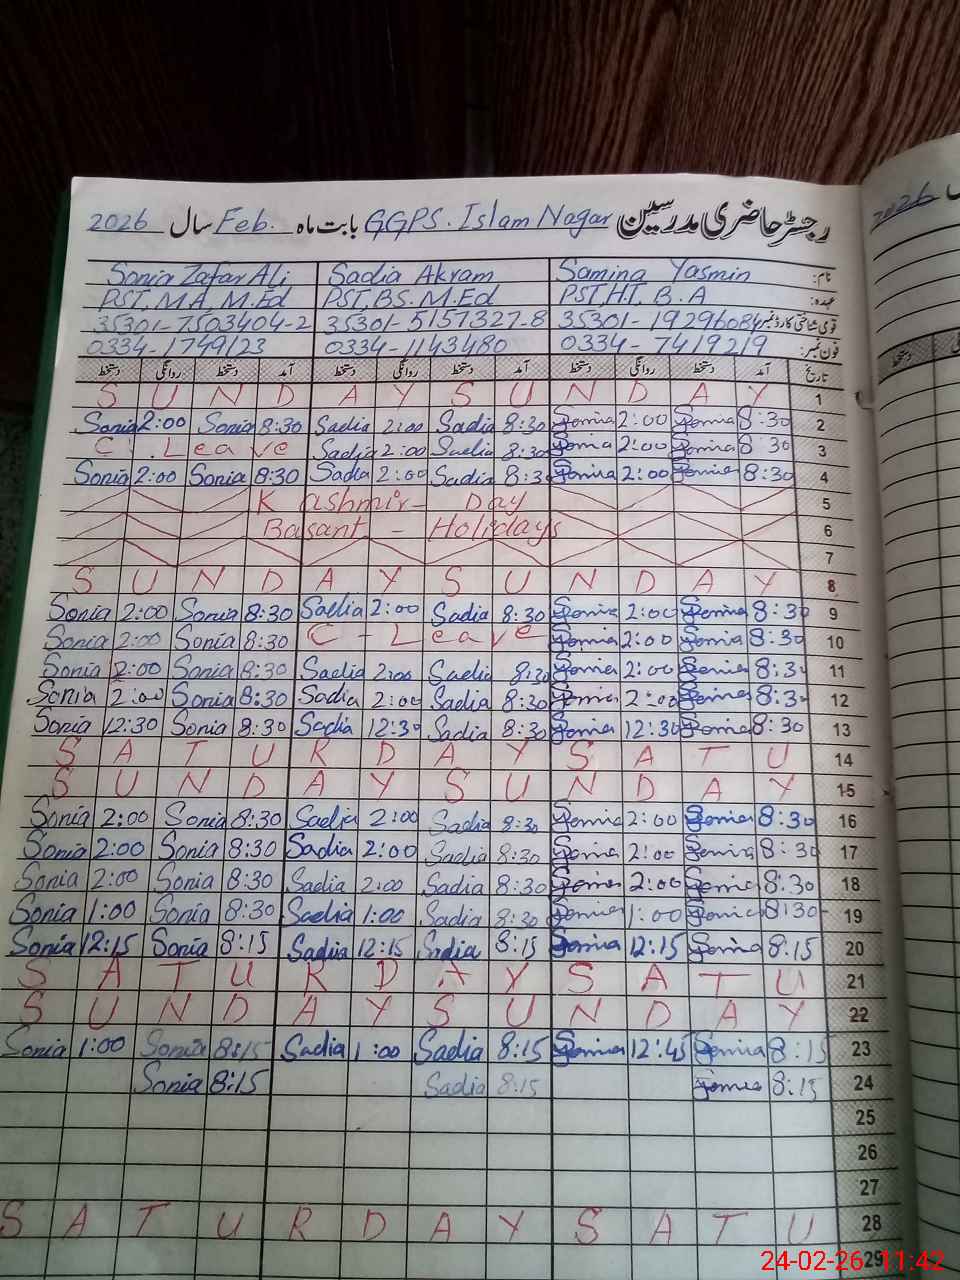 رجسٹر حاضری مدرسین GGPS. Islam Nagar بابت ماہ Feb. سال 2026
2026
نام: Samina Yasmin Sadia Akram Sonia Zafar Ali
عہدہ: PST, HT, B.A PST, BS. M.Ed PST, M.A, M.Ed
قومی شناختی کارڈ نمبر 35301-19296084 35301-5157327-8 35301-7503404-2
فون نمبر: 0334-7419219 0334-1143480 0334-1749123
تاریخ آمد دستخط روانگی دستخط آمد دستخط روانگی دستخط آمد دستخط روانگی دستخط
دستخط
S U N D A Y S U N D A Y 1
Sonia 2:00 Sonia 8:30 Sadia 2:00 Sadia 8:30 2:00 8:30 2
C. Leave Sadia 2:00 Sadia 8:30 2:00 8:30 3
Sonia 2:00 Sonia 8:30 Sadia 2:00 Sadia 8:30 2:00 8:30 4
Kashmir - Day 5
Basant - Holidays 6
7
S U N D A Y S U N D A Y 8
Sonia 2:00 Sonia 8:30 Sadia 2:00 Sadia 8:30 2:00 8:30 9
Sonia 2:00 Sonia 8:30 C - Leave 2:00 8:30 10
Sonia 2:00 Sonia 8:30 Sadia 2:00 Sadia 8:30 2:00 8:30 11
Sonia 2:00 Sonia 8:30 Sadia 2:00 Sadia 8:30 2:00 8:30 12
Sonia 12:30 Sonia 8:30 Sadia 12:30 Sadia 8:30 12:30 8:30 13
S A T U R D A Y S A T U 14
S U N D A Y S U N D A Y 15
Sonia 2:00 Sonia 8:30 Sadia 2:00 Sadia 8:30 2:00 8:30 16
Sonia 2:00 Sonia 8:30 Sadia 2:00 Sadia 8:30 2:00 8:30 17
Sonia 2:00 Sonia 8:30 Sadia 2:00 Sadia 8:30 2:00 8:30 18
Sonia 1:00 Sonia 8:30 Sadia 1:00 Sadia 8:30 1:00 8:30 19
Sonia 12:15 Sonia 8:15 Sadia 12:15 Sadia 8:15 12:15 8:15 20
S A T U R D A Y S A T U 21
S U N D A Y S U N D A Y 22
Sonia 1:00 Sonia 8:15 Sadia 1:00 Sadia 8:15 12:45 8:15 23
Sonia 8:15 Sadia 8:15 8:15 24
25
26
27
S A T U R D A Y S A T U 28
29
24-02-26 11:42